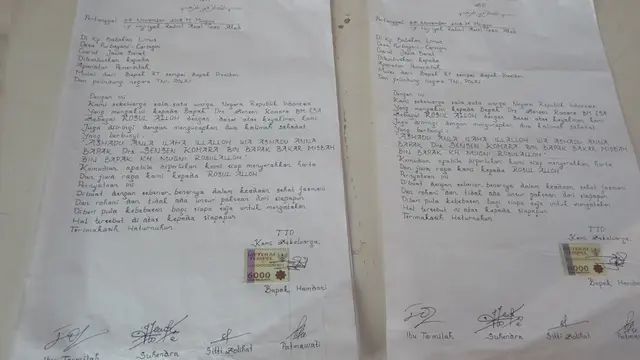 Di Kp Babakan Limus
Desa
Garut Jawa Barat
Diberitahukan kepada
Aparatur Pemerintah
Mulai dari Bapak RT sampai Bapak Presiden
Dan pelindung negara TNI. POLRI
Dengan ini
Kami sekeluarga salah satu warga Negara Republik Indonesia
Yang mengakui kepada Bapak Drs
Sebagai ROSUL ALLOH dengan dasar atas keyakinan kami
Juga diiringi dengan mengucapkan dua kalimah sahadat
Yang berbunyi :
"ASHADU ANLA ILAHA ILALLOH WA ASHADU ANNA
BAPAK Drs SENSEN KOMARA BIN BAPAK BAKAR MISBAH
BIN BAPAK KH MUSNI ROSULALLOH"
Kemudian apabila diperlukan kami siap menyerahkan harta
Dan jiwa raga kami kepada ROSUL ALLOH
Pernyataan ini
Dibuat dengan sebenar benarnya dalam keadaan sehat jasmani
Dan rohani dan tidak ada unsur paksaan dari siapapun
Diberi pula kebebasan bagi siapa saja untuk menyatakan
Hal tersebut di atas kepada siapapun
Terimakasih Haturnuhun
TTD
Kami Sekeluarga
METERAI
TEMPEL
6000
Bapak Hamdani
Ibu Tamilah
Suhendra
Sitti
Patmawati
Di Kp Babakan Limus
Garut Jawa Barat
Diberitahukan kepada
Aparatur Pemerintah
Mulai dari Bapak RT sampai Bapak Presiden
Dan pelindung negara TNI. POLRI
Dengan ini
Kami sekeluarga salah satu warga Negara Republik
Yang mengakui kepada Bapak Drs
Sebagai ROSUL ALLOH dengan dasar atas keyakinan kami
Juga diiringi dengan mengucapkan dua kalimah sahadat
Yang berbunyi :
"ASHADU ANLA ILAHA ILALLOH WA ASHADU ANNA
BAPAK Drs SENSEN KOMARA BIN BAPAK BAKAR MISBAH
BIN BAPAK KH MUSNI ROSULALLOH"
Kemudian apabila diperlukan kami siap menyerahkan harta
Dan jiwa raga kami kepada ROSUL ALLOH
Pernyataan ini
Dibuat dengan sebenar benarnya dalam keadaan sehat jasmani
Dan rohani dan tidak ada unsur paksaan dari siapapun
Diberi pula kebebasan bagi siapa saja untuk menyatakan
Hal tersebut di atas kepada siapapun
Terimakasih Haturnuhun
TTD
Kami Sekeluarga
6000
Bapak Hamdani
Ibu Tamilah
Suhendra
Sitti
Patmawati